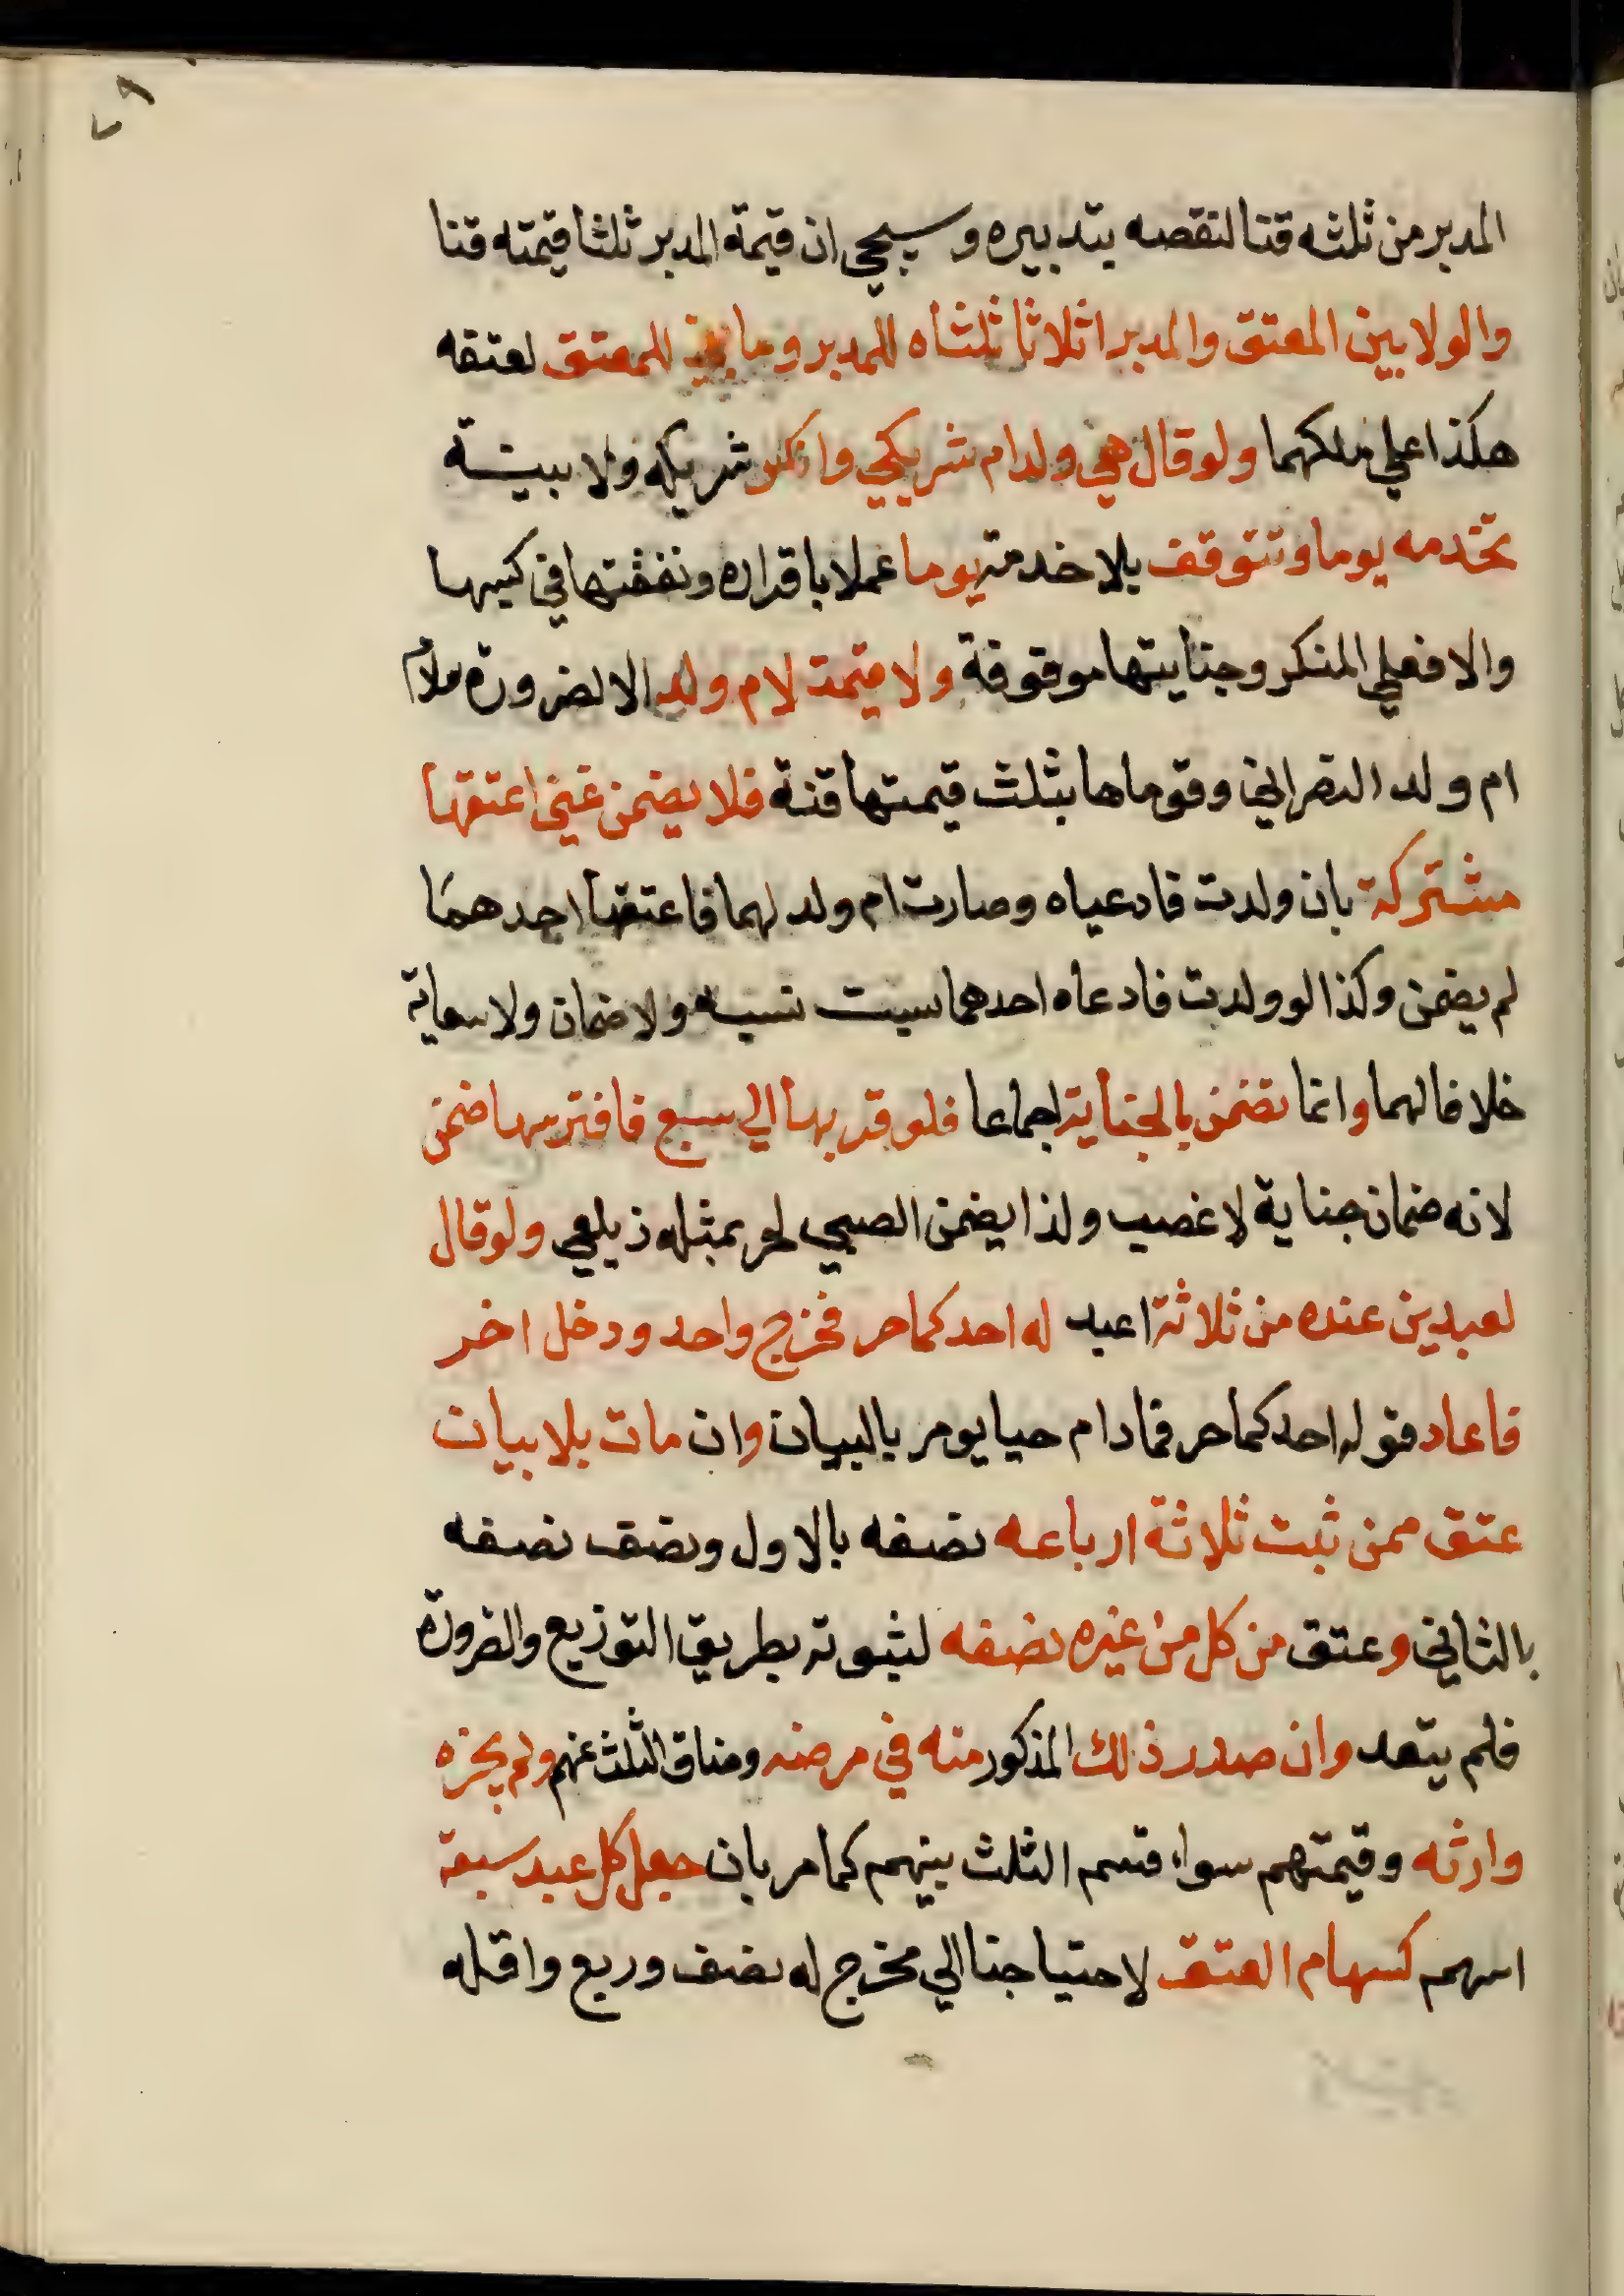 المدبر من ثلثه قنا لنقصه بتدبيره وسيجي ان قيمة المدبر ثلثا قيمته قنا
والولا بين المعتق والمدبر اثلاثا ثلثاه للمدبر وما بقي للمعتق لعتقه
هكذا علي ملكهما ولو قال هي ولد ام شريكي وانكر شريكه ولا بينة
تخدمه يوما وتتوقف بلا خدمة يوما عملا باقراره ونفقتها في كسبها
والا فعلي المنكر وجنايتها موقوفة ولا قيمة لام ولد الا لضرورة
ام ولد النصراني وقوماها بثلث قيمتها قنة فلا يضمن غني اعتقها
مشتركة بان ولدت فادعياه وصارت ام ولد لهما فاعتقها احدهما
لم يضمن وكذا لو ولدت فادعاه احدهما سبت نسبه ولا ضمان ولا سعاية
خلافا لهما وانما تضمن بالجناية اجماعا فلو قربها الي سبع فافترسها ضمن
لانه ضمان جناية لا غصب ولذا يضمن الصبي لحر بمثله زيلعي ولو قال
لعبدين عنده من ثلاثة اعبد له احدكما حر فخرج واحد ودخل اخر
فاعاد قوله احدكما حر فمادام حيا يومر بالبيان وان مات بلا بيان
عتق ممن ثبت ثلاثة ارباعه نصفه بالاول ونصف نصفه
بالثاني وعتق من كل من غيره نصفه لثبوته بطريق التوزيع والضرورة
فلم يتعد وان صدر ذلك المذكور منه في مرضه وضاق الثلث عنهم ولم يجزه
وارثه وقيمتهم سواء قسم الثلث بينهم كما مر بان جعل كل عبد سبعة
اسهم كسهام العتق لاحتياجنا الي مخرج له نصف وربع واقله